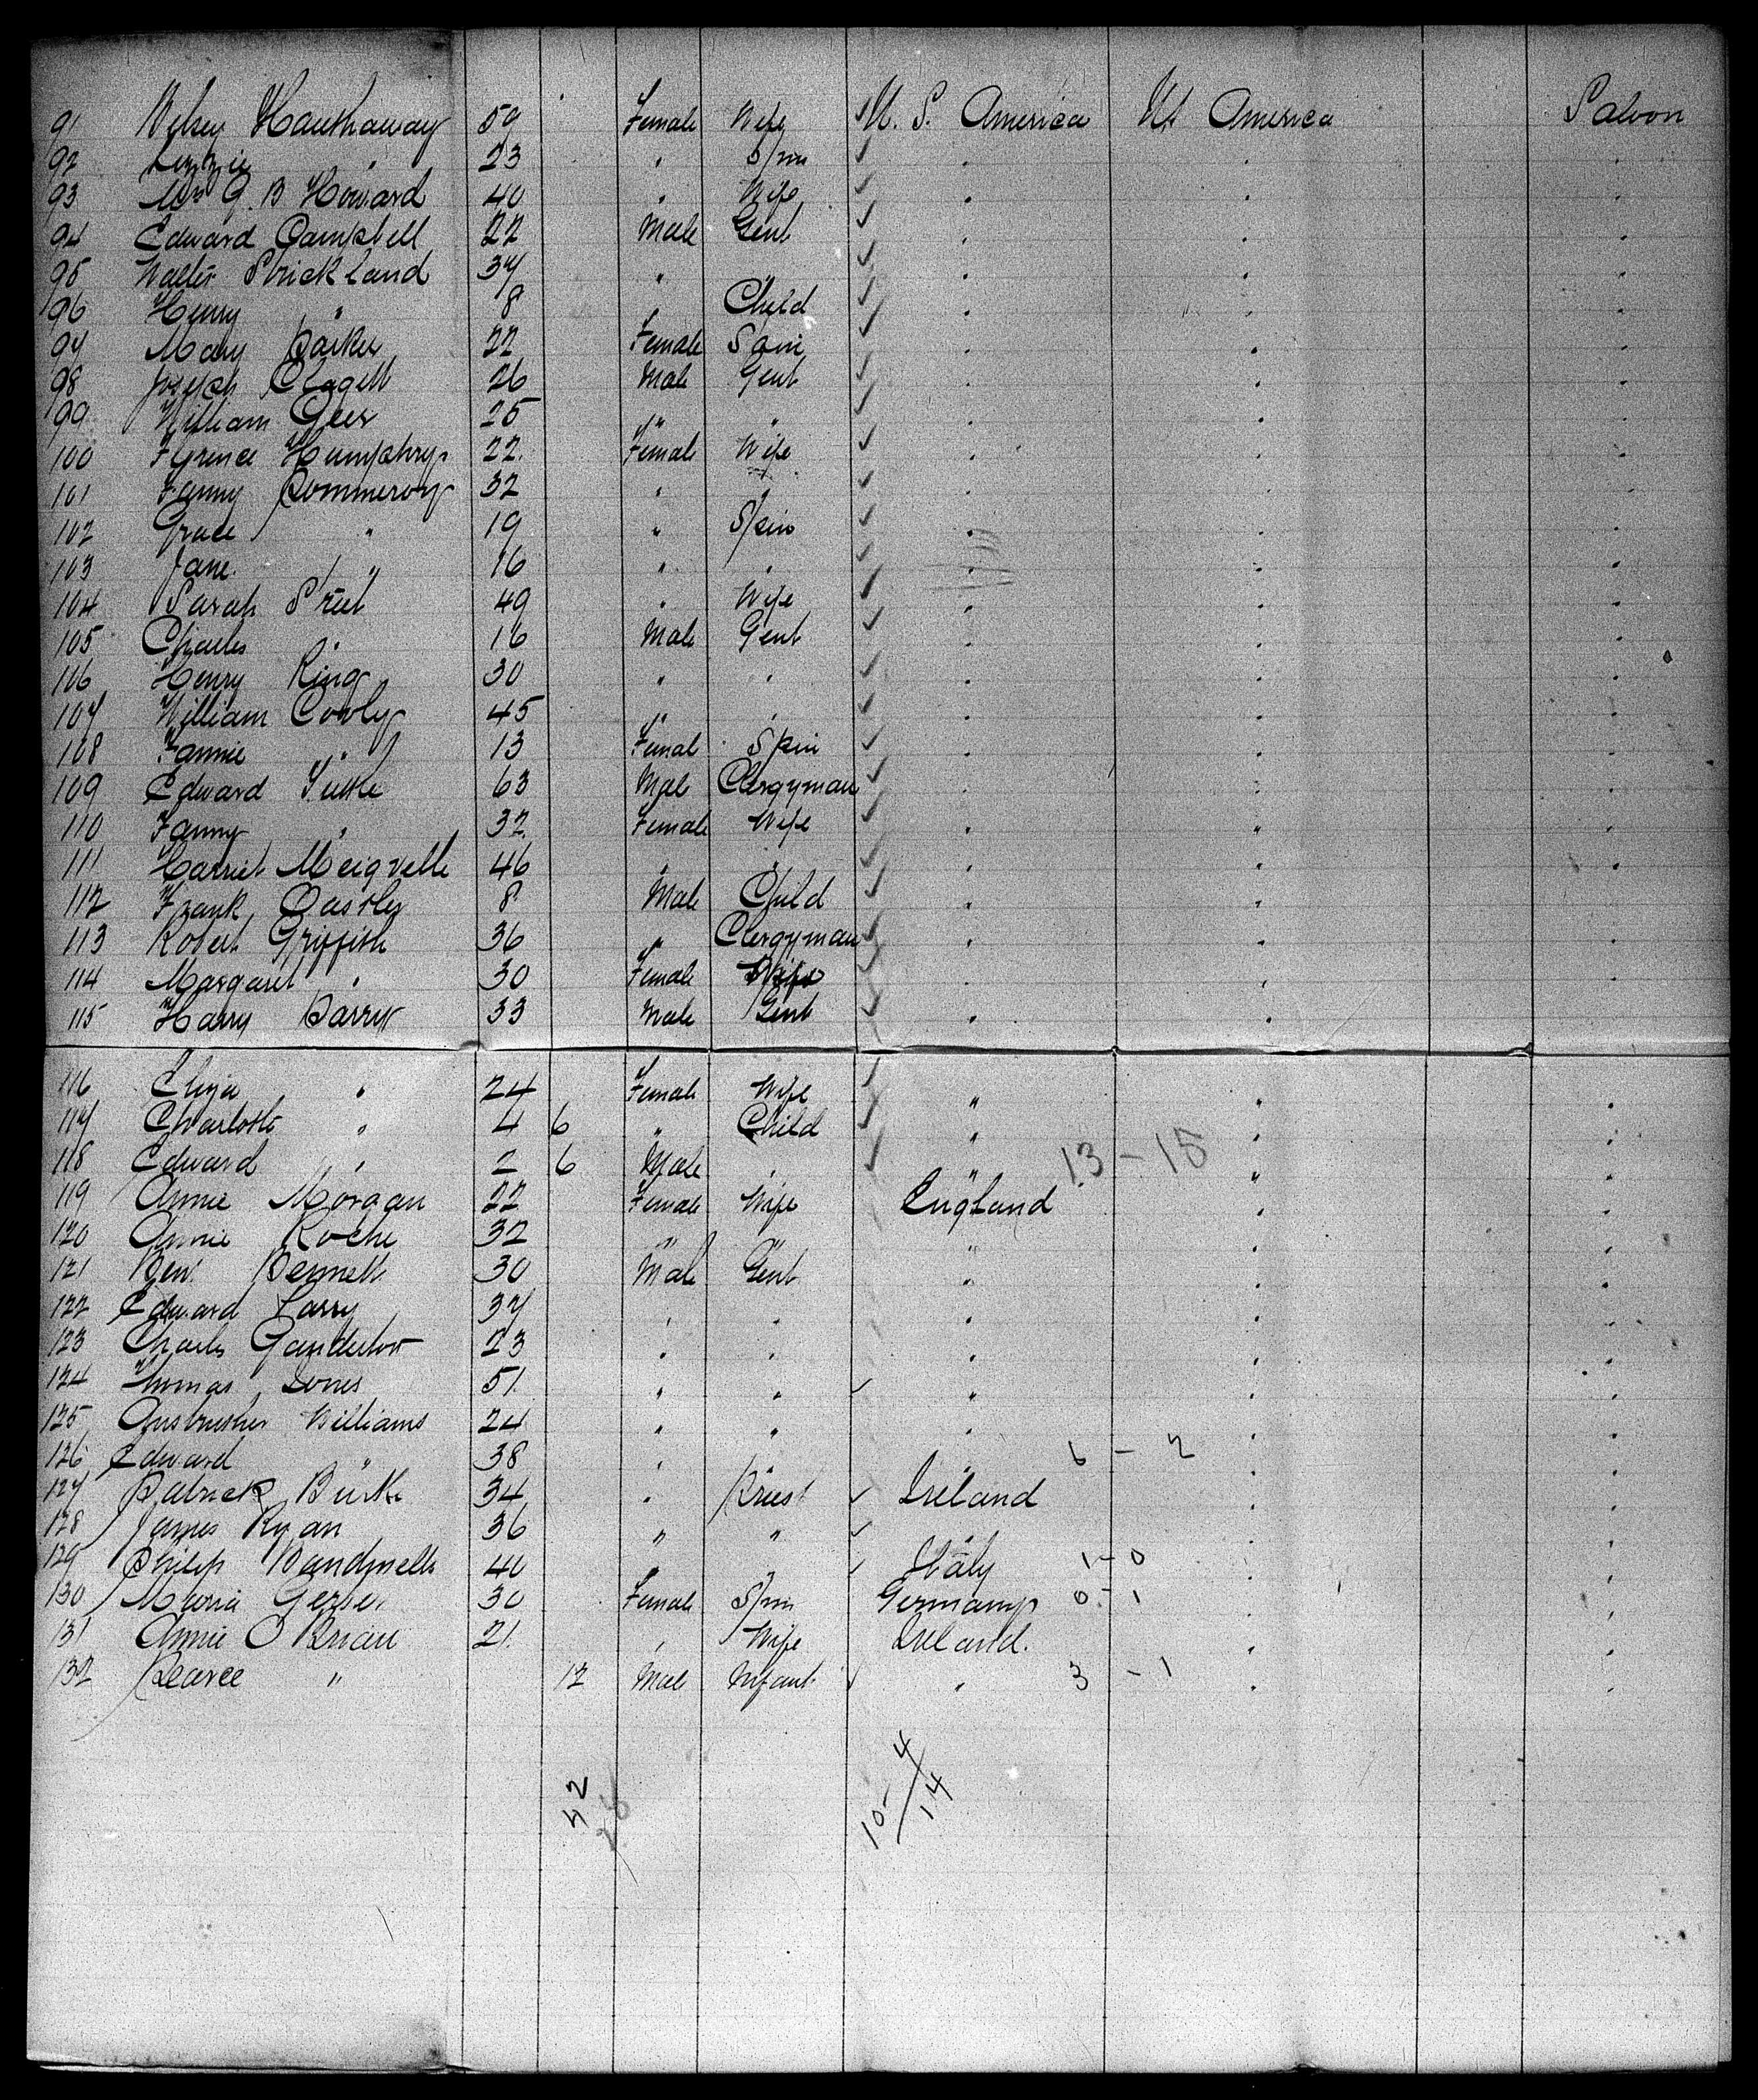 91 Hauthaway 59 Female Wife ✓ U. S. America US America Saloon
92 Lizzie " 23 " Spin ✓ " " "
93 Mrs G. B Howard 40 " Wife ✓ " " "
94 Edward Campbell 22 Male Gent ✓ " " "
95 Walter Strickland 37 " " ✓ " " "
96 Henry " 8 " Child ✓ " " "
97 Mary Parker 22 Female Spin ✓ " " "
98 Joseph Clagett 26 Male Gent ✓ " " "
99 William Geer 25 " " ✓ " " "
100 Humphrys 22 Female Wife ✓ " " "
101 Fanny Pommeroy 32 " " ✓ " " "
102 Grace " 19 " Spin ✓ " " "
103 Jane " 16 " " ✓ " " "
104 Sarah Street 49 " Wife ✓ " " "
105 Charles " 16 Male Gent ✓ " " "
106 Henry King 30 " " ✓ " " "
107 William Cowly 45 " " ✓ " " "
108 Fannie " 13 Female Spin ✓ " " "
109 Edward 63 Male Clergyman ✓ " " "
110 Fanny " 32 Female Wife ✓ " " "
111 Harriet 46 " " ✓ " " "
112 Frank 8 Male Child ✓ " " "
113 Robert Griffith 36 " Clergyman ✓ " " "
114 Margaret " 30 Female Wife ✓ " " "
115 Harry Barry 33 Male Gent ✓ " "
116 Eliza " 24 Female Wife ✓ " " "
117 Charlotte " 4 6 " Child ✓ " " "
118 Edward " 2 6 Male " ✓ " 13 - 15 " "
119 Annie Morgan 22 Female Wife England " "
120 Annie Roche 32 " " " " "
121 Bennett 30 Male Gent " " "
122 Edward 37 " " " " "
123 Charles 23 " " " " "
124 Thomas Jones 51 " " ✓ " " "
125 Williams 24 " " " " "
126 Edward " 38 " " 6 - 2 " "
127 Patrick Burke 34 " Priest ✓ Ireland " "
128 James Ryan 36 " " ✓ " " "
129 Philip 40 " " ✓ Italy 1 - 0 " "
130 Maria Gerber 30 Female Spin Germany 0 - 1 " "
131 Annie O Brian 21 " Wife Ireland. " "
132 Pearce " 12 Male Infant ✓ " 3 - 1 " "
42
10 - 4
14